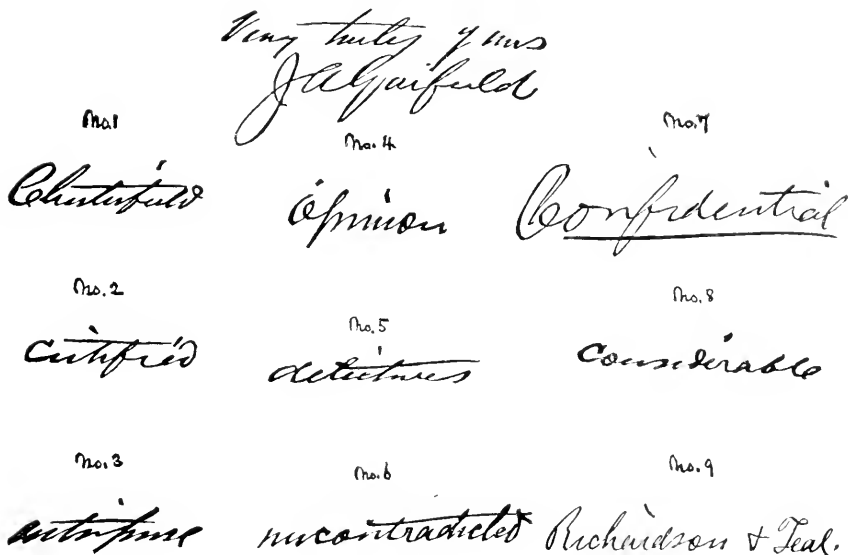 Very truly yours
J A Garfield
No. 1
Chesterfield
No. 2
certified
No. 3
No. 4
Opinion
No. 5
detectives
No. 6
uncontradicted
No. 7
Confidential
No. 8
considerable
No. 9
Richardson & Teal.